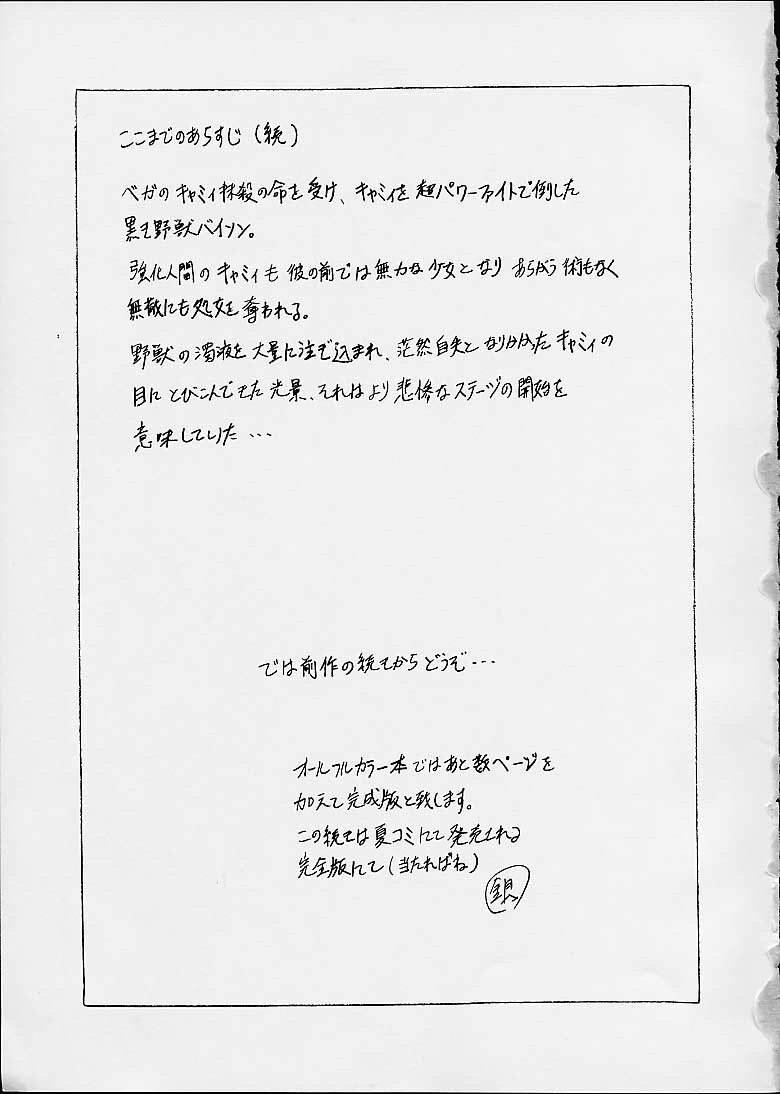 ここまでのあらすじ(続)
ベガのキャミィ抹殺の命を受け、キャミィを超パワーファイトで倒した
黒き野獣バイソン。
強化人間のキャミィも彼の前では無力な少女となりあらがう術もなく
無惨にも処女を奪われる。
野獣の濁液を大量に注ぎ込まれ、茫然自失となりかかったキャミィの
目にとびこんできた光景、それはより悲惨なステージの開始を
意味していた・・・
では前作の続きからどうぞ・・・
オールフルカラー本ではあと数ページを
加えて完成版と致します。
この続きは夏コミにて発売される
完全版にて(当たればね)
銀